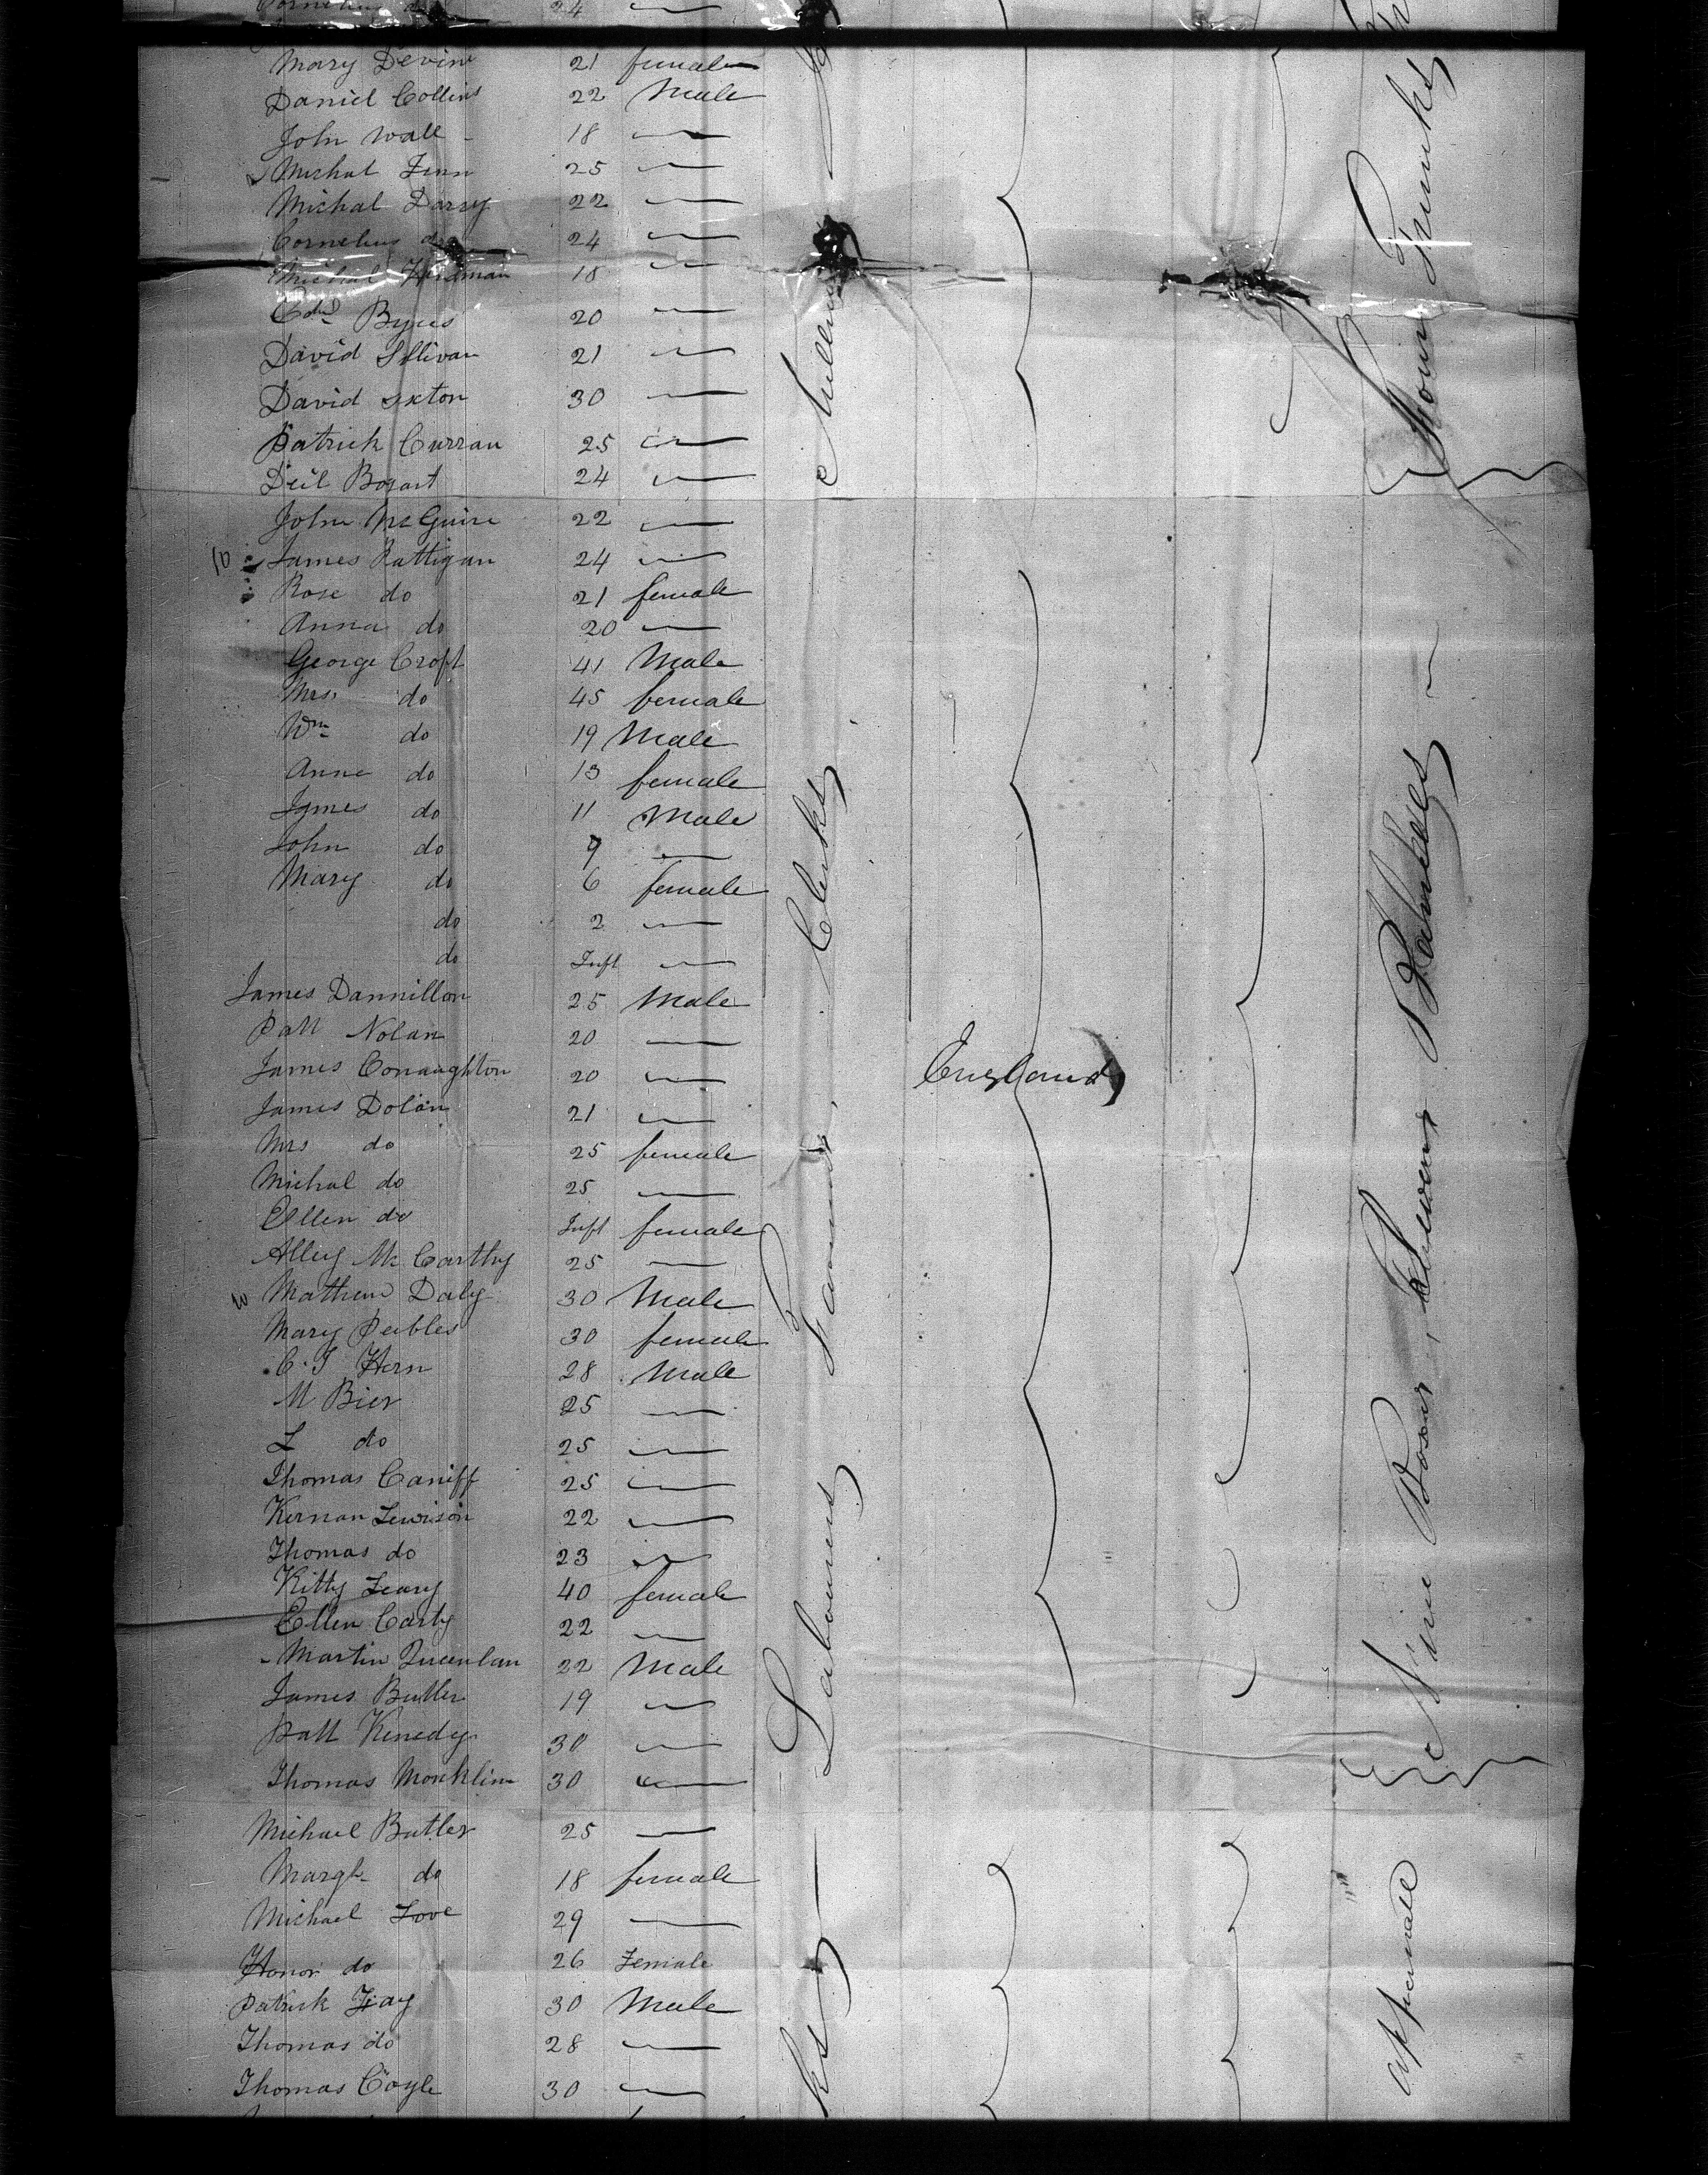 Cornelius do 24
Mary Devine 21 female
Daniel Collins 22 Male
John Wall 18
Michal Finn 25
Michal Darsy 22
Cornelius do 24
Michal 18
Edwd Byrus 20
David Sllivan 21
David Sexton 30
Patrick Curran 25
Deil Bogart 24
John McGuire 22
10 James Rattigan 24
Rose do 21 female
Anna do 20
George Croft 41 Male
Mrs do 45 female
Wm do 19 Male
Anne do 13 female
James do 11 Male
John do 9
Mary do 6 female
do 2
do Inft
James Dannillon 25 Male
Patt Nolan 20
James Conaughton 20
James Dolan 21
Mrs do 25 female
Michal do 25
Ellen do Inft female
Alley Mc Carthy 25
10 Mathew Daly 30 Male
Mary Peebles 30 female
C. J Hern 28 Male
M Bier 25
L do 25
Thomas Caniff 25
Kernan Lewison 22
Thomas do 23
Kitty Leary 40 female
Ellen Carty 22
Martin Queenlan 22 Male
James Butler 19
Patt Kenedy 30
Thomas Monklin 30
Michael Butler 25
Margt do 18 female
Michael Love 29
Honor do 26 Female
Patrick Fay 30 Male
Thomas do 28
Thomas Coyle 30
Labourers Farmers Clerks
England
Trunks
Nine Boxes,
apparall